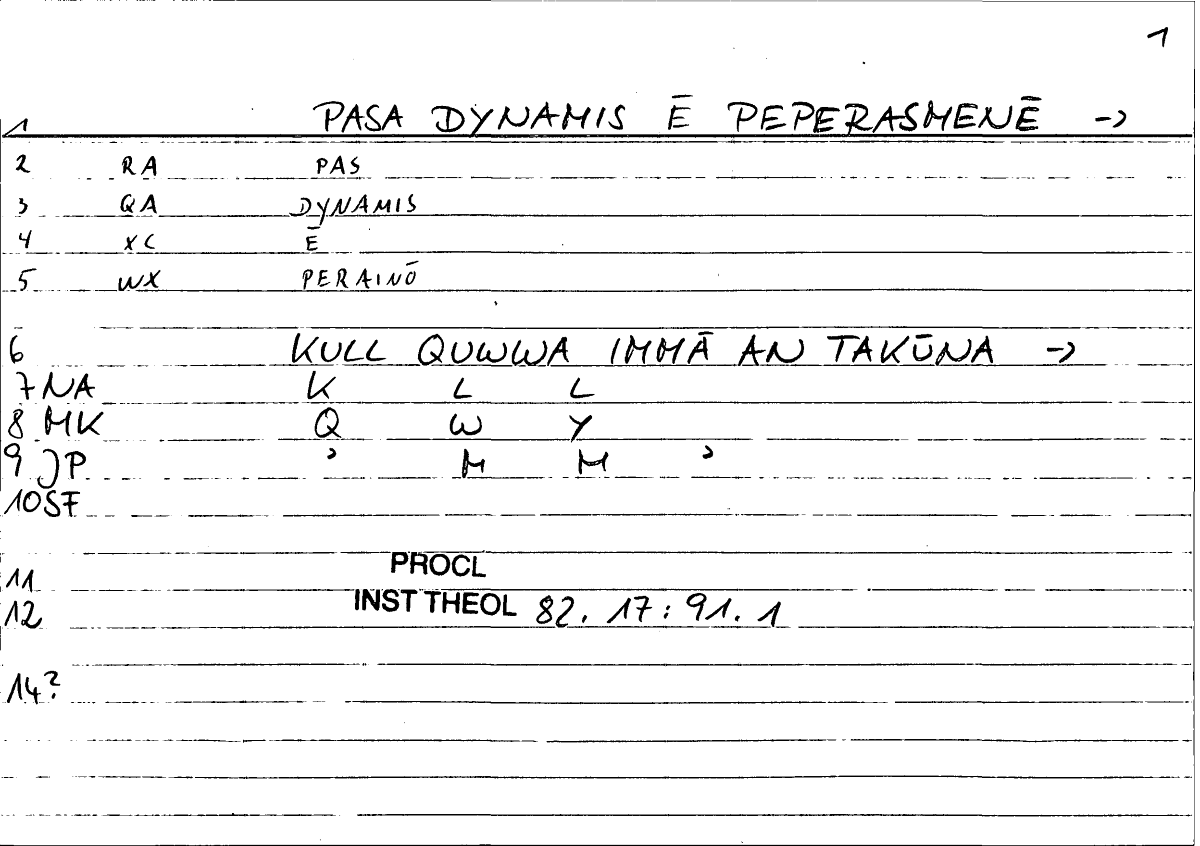 1
1 PASA DYNAMIS Ē PEPERASMENĒ ->
2 RA PAS
3 QA DYNAMIS
4 XC Ē
5 WX PERAINŌ
6 KULL QUWWA IMMĀ AN TAKŪNA ->
7 NA K L L
8 MK Q W Y
9 JP ʾ M M ʾ
10 SF
11 PROCL
12 INST THEOL 82. 17 : 91. 1
14?